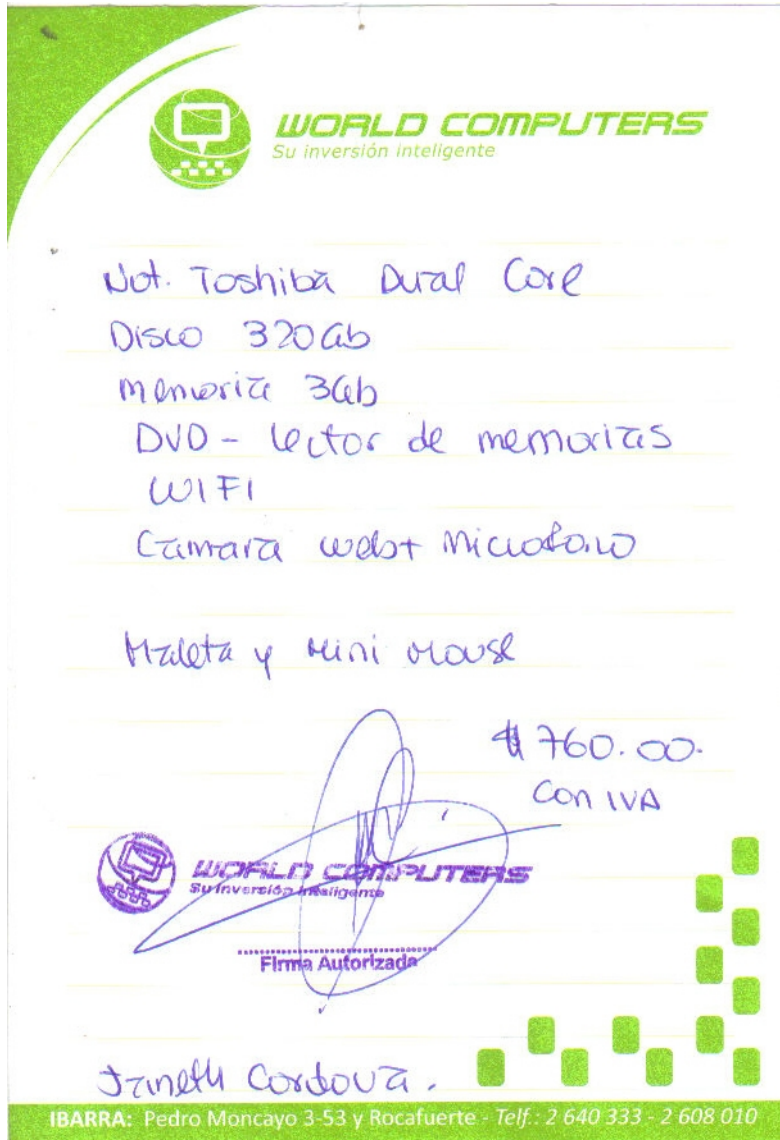 WORLD COMPUTERS
Su inversión inteligente
Not. Toshiba Dural Core
Disco 320Gb
Memoria 3Gb
DVD - lector de memorias
WIFI
Camara web + Microfono
Maleta y Mini Mouse
$760.00.
Con IVA
WORLD COMPUTERS
Su inversión inteligente
Firma Autorizada
Janeth Cordova.
IBARRA: Pedro Moncayo 3-53 y Rocafuerte - Telf.: 2 640 333 - 2 608 010